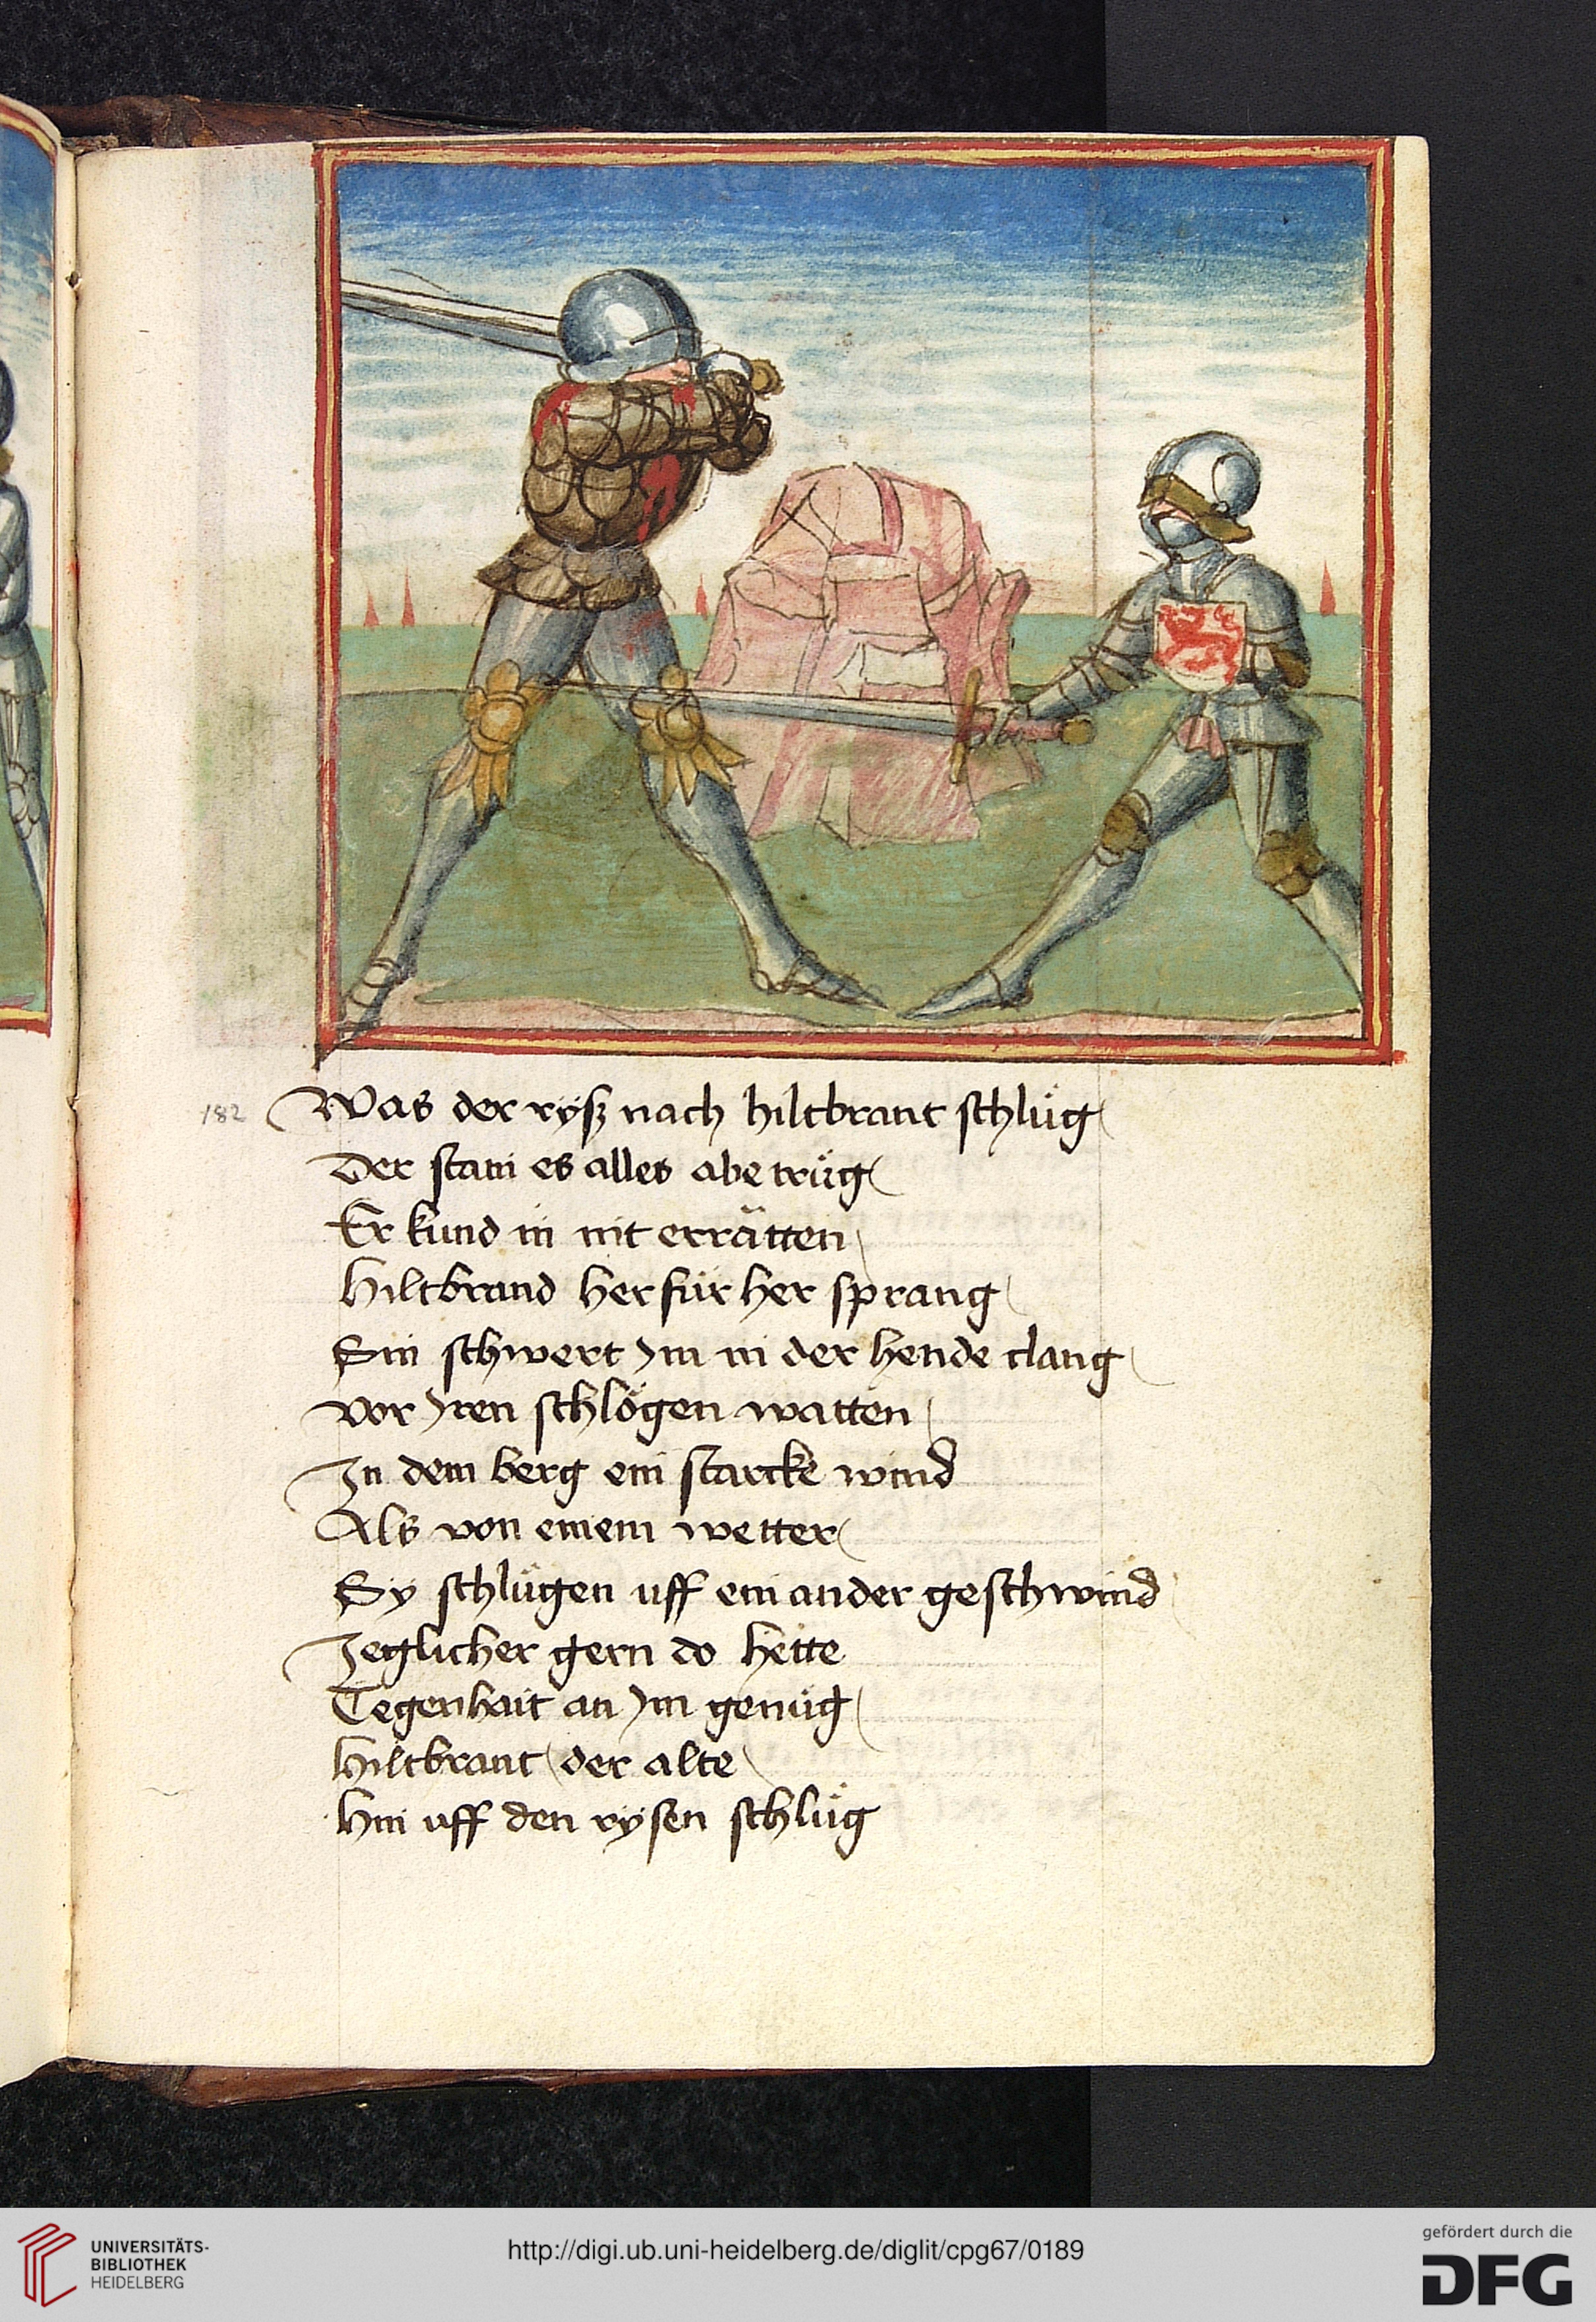 182 Was der ryß nach hiltbrant schlůg
Der stain es alles abe trůg
Er kund in nit errätten
Hiltbrand herfür her sprang
Sin schwert ym in der hende clang
Vor yren schlögen wätten
In dem berg ein starcke wind
Als von einem wetter
Sy schlůgen uff ein ander geschwind
Jeglicher gern do hette
Tegenhait an ym genůg
Hiltbrant der alte
Hin uff den rysen schlůg
UNIVERSITÄTS-
BIBLIOTHEK
HEIDELBERG
http://digi.ub.uni-heidelberg.de/diglit/cpg67/0189
gefördert durch die
DFG